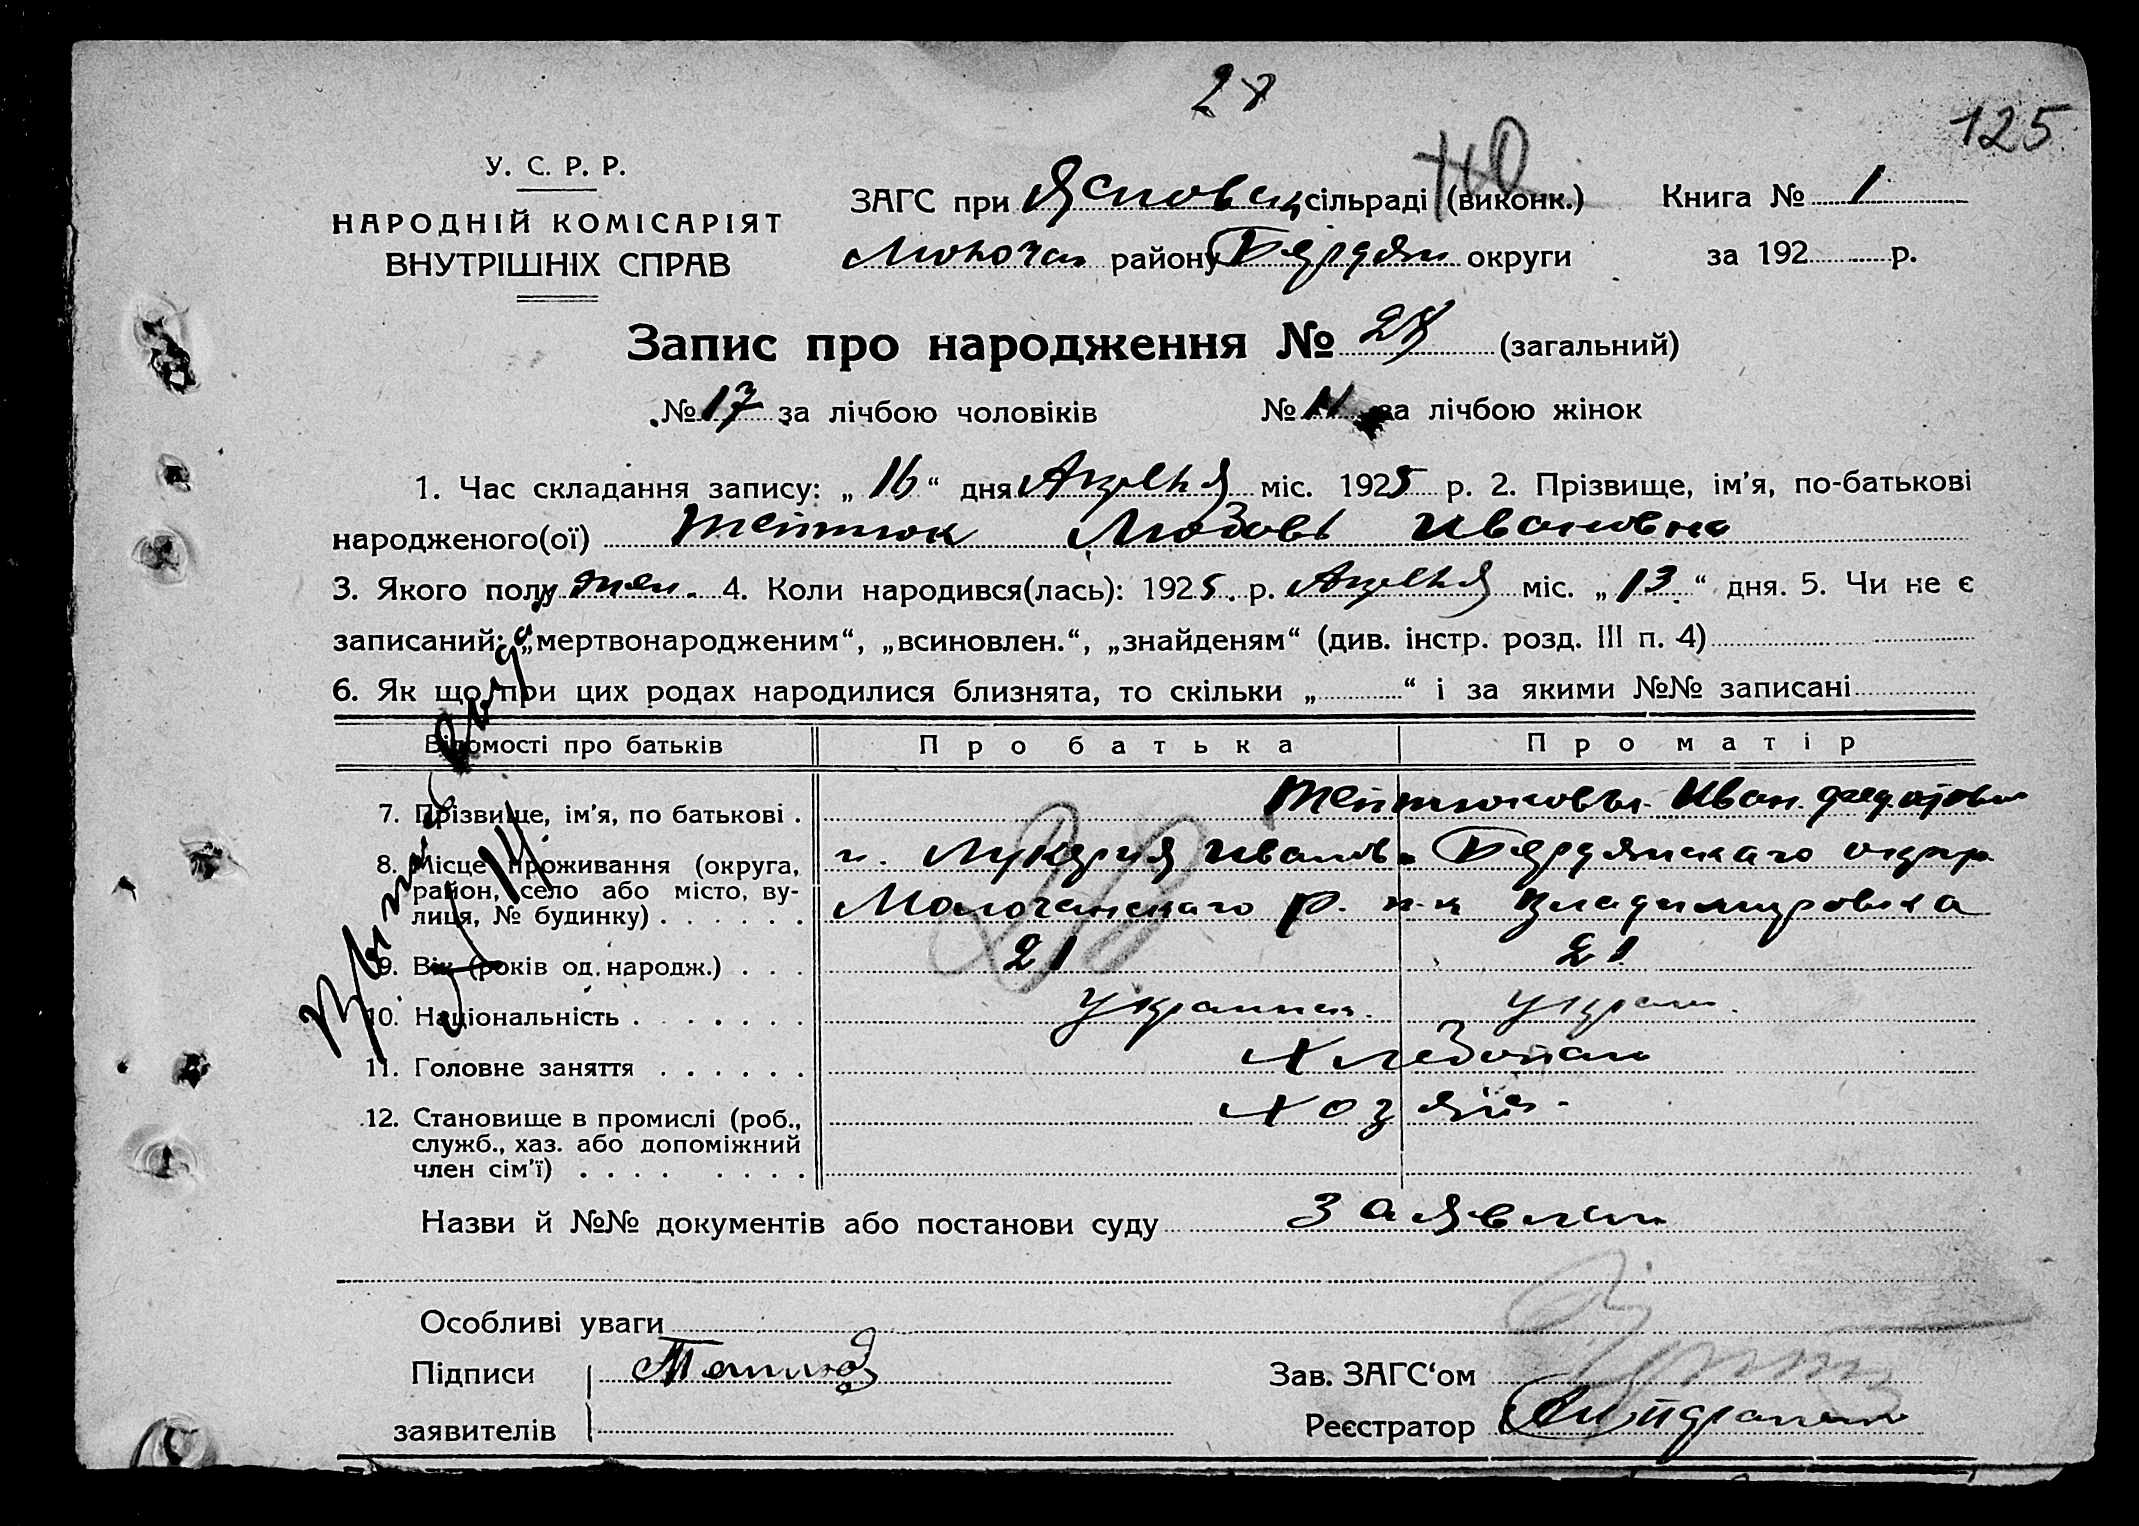 28
125
У. С. Р. Р.
НАРОДНІЙ КОМІСАРІЯТ
ВНУТРІШНІХ СПРАВ
ЗАГС при сільраді (виконк.) Книга № 1
району Бердян округи за 192 р.
Запис про народження № 28 (загальний)
№ 17 за лічбою чоловіків № 11 за лічбою жінок
1. Час складання запису: „ 16 “ дня Апреля міс. 1925 р. 2. Прізвище, ім'я, по-батькові
народженого(ої) Любовь Ивановна
3. Якого полу жен. 4. Коли народився(лась): 1925. р. Апреля міс. „ 13 “ дня. 5. Чи не є
записаний: „мертвонародженим“, „всиновлен.“, „знайденям“ (див. інстр. розд. III п. 4)
6. Як що при цих родах народилися близнята, то скільки „ “ і за якими №№ записані
Відомості про батьків Про батька Про матір
7. Прізвище, ім'я, по батькові . Иван
8. Місце проживання (округа, и. Лукерия Иванов. Бердянскаго окр.
район, село або місто, ву-
лиця, № будинку) . . . . . . Молочанскаго р. Владимировка
9. Вік (років од народж.) . . . 21 21
10. Національність . . . . . . . украинск. украин.
11. Головне заняття . . . . . . Хлебопаш
12. Становище в промислі (роб., Хозяин
служб., хаз. або допоміжний
член сім'ї) . . . . . . . .
Назви й №№ документів або постанови суду заявлен
Особливі уваги
Підписи Зав. ЗАГС‘ом
заявителів Реєстратор